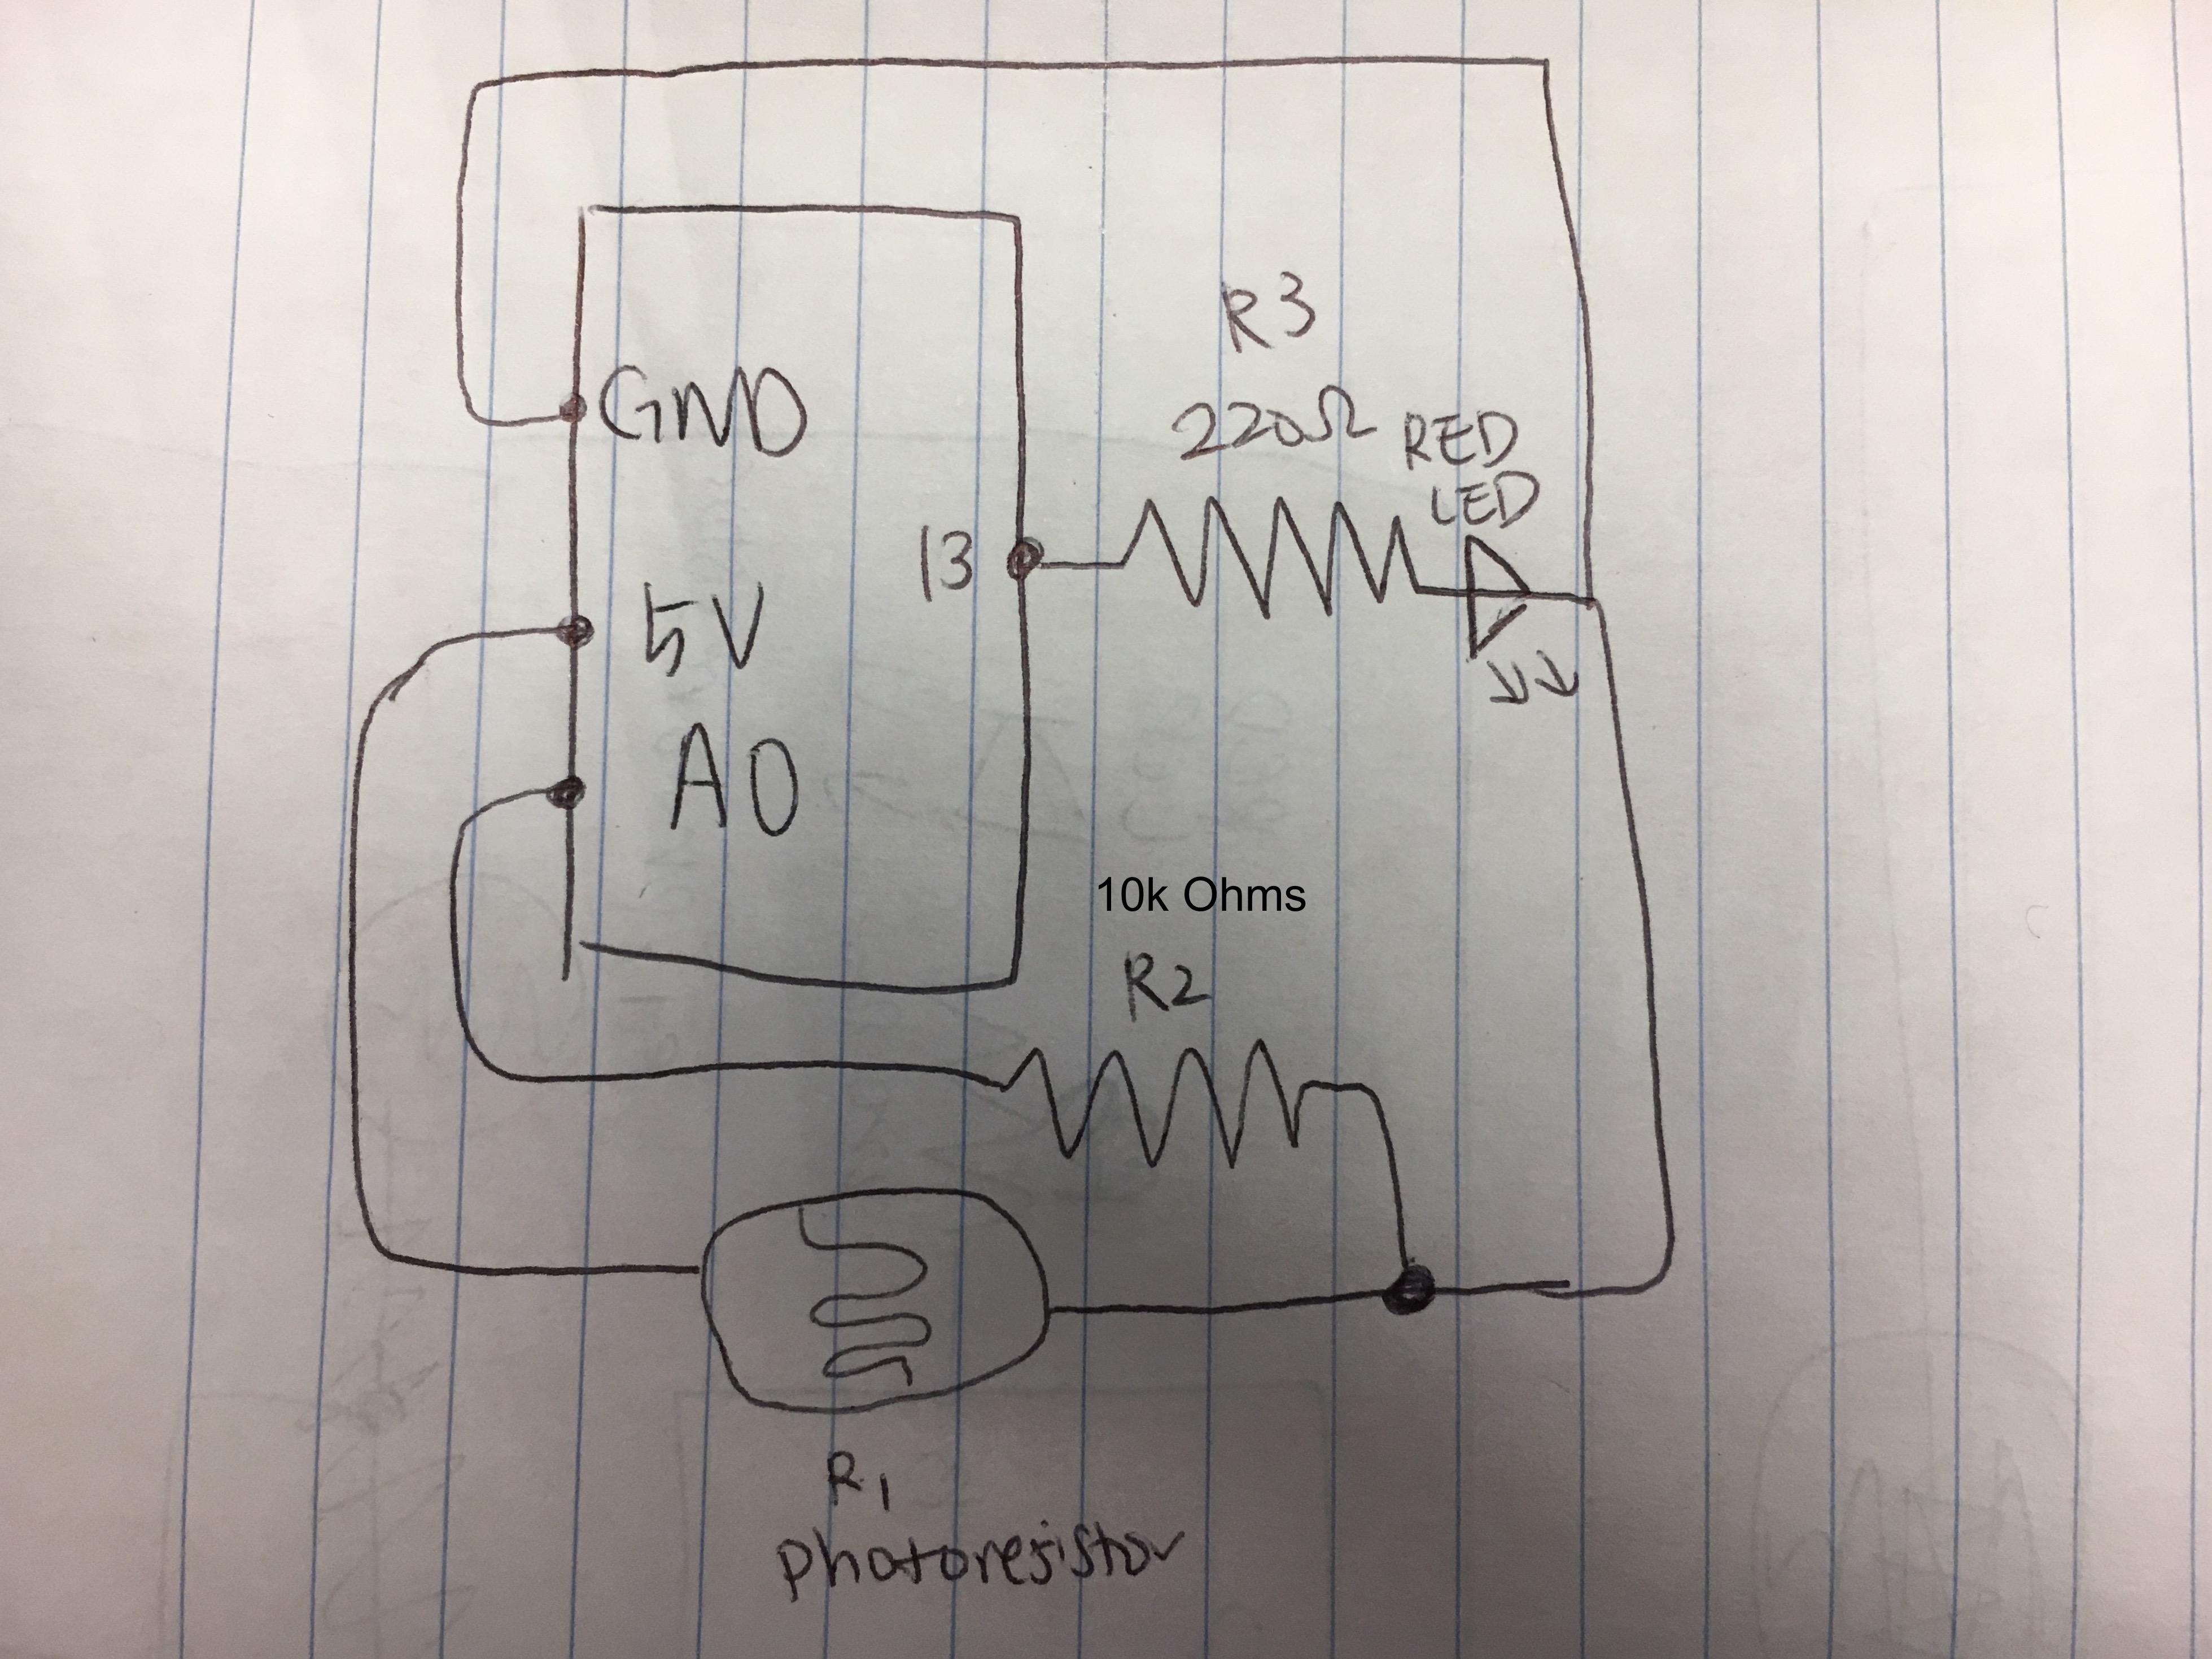 GND
5V
A0
13
R3
220Ω
RED
LED
10k Ohms
R2
R1
photoresistor